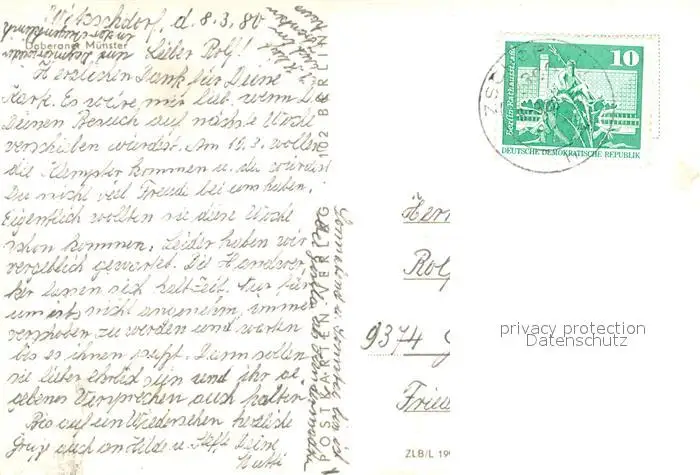 Witzschdorf, d. 8.3.80
Doberaner Münster
Lieber Rolf!
Herzlichen Dank für Deine
Karte. Es wäre mir lieb, wenn Du
Deinen Besuch auf nächste Woche
verschieben würdest. Am 10.3. wollen
die Klempter kommen u. da würdest
Du nicht viel Freude bei uns haben.
Eigentlich wollten sie diese Woche
schon kommen. Leider haben wir
vergeblich gewartet. Die Handwer-
ker lassen sich halt Zeit. Nur für
uns ists nicht angenehm, immer
verschoben zu werden und warten
bis es ihnen paßt. Dann sollen
sie lieber ehrlich sein und ihr ge-
gebenes Versprechen auch halten.
Bis auf ein Wiedersehen herzliche
Grüße auch an Hilde u. Steffi Deine
Mutti
POSTKARTEN-VERLAG
102 BERLIN
Sonnabend u. Sonntag bin ich
Berlin-Rathausstraße
10
DEUTSCHE DEMOKRATISCHE REPUBLIK
Her
Rolf
9374
Fried
privacy protection
Datenschutz
ZLB/L 190